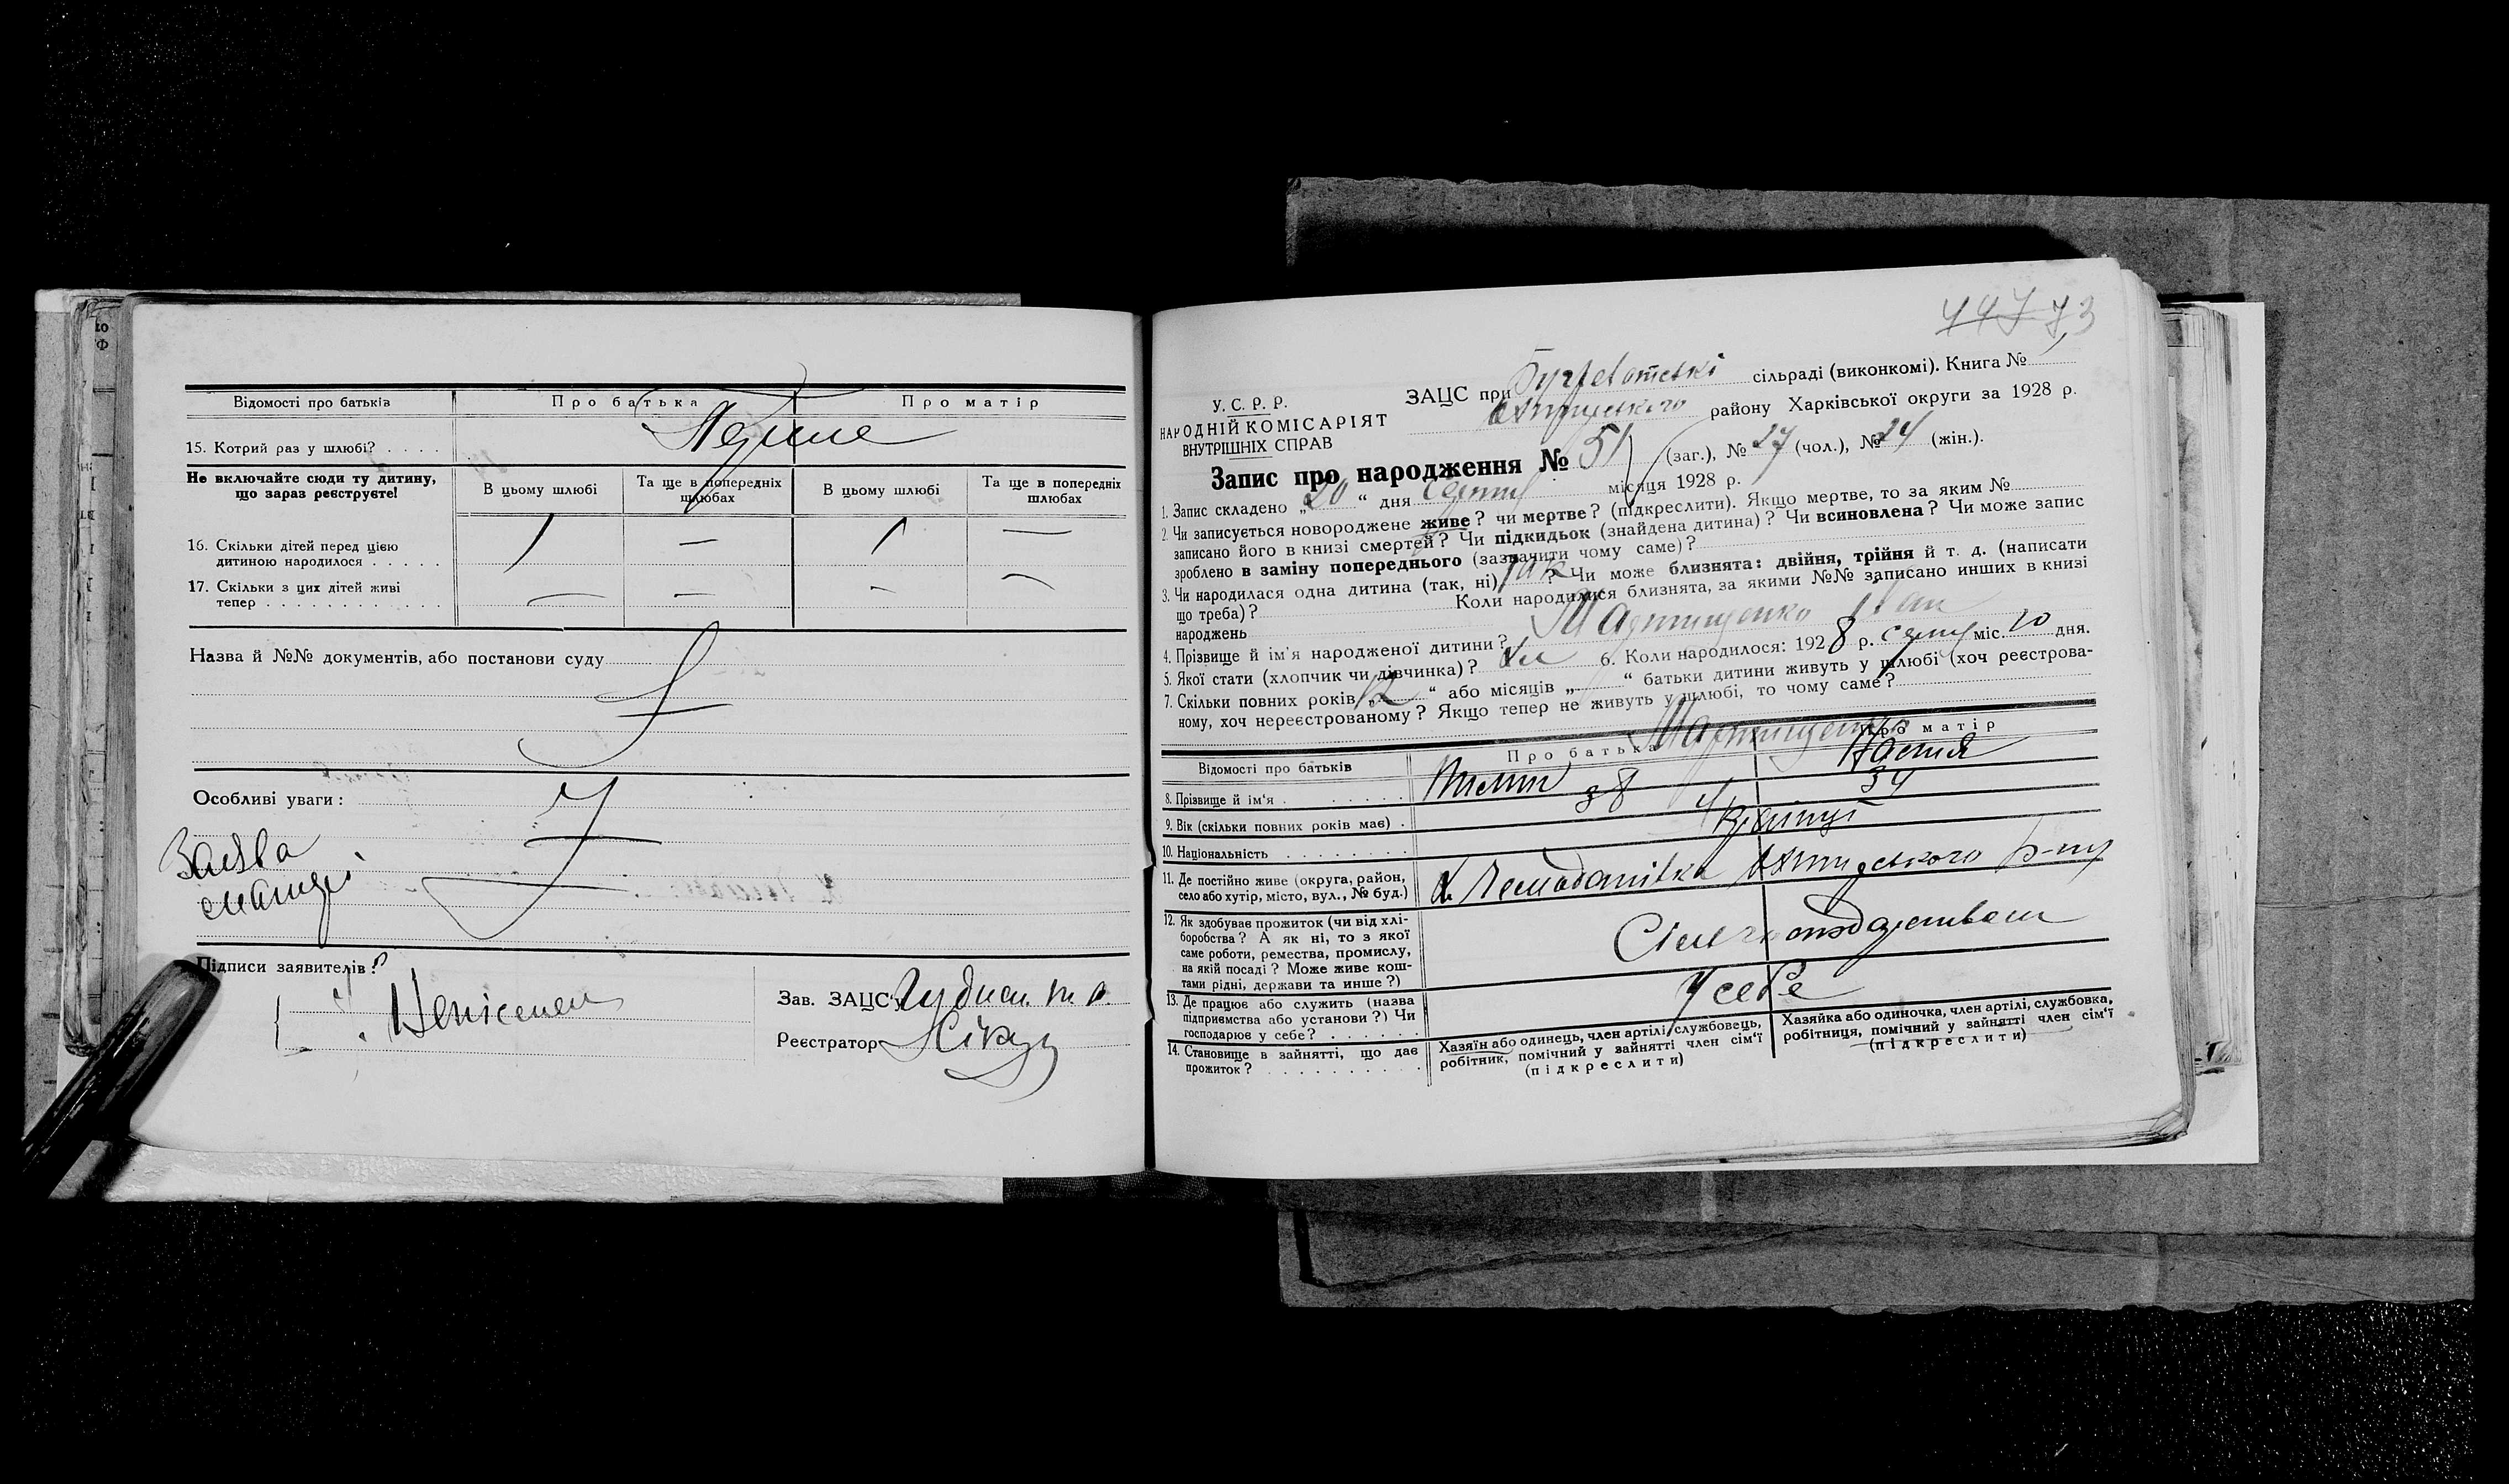 Відомості про батьків
Про батька
Про матір
15. Котрий раз у шлюбі?
Перше
Не включайте сюди ту дитину, що зараз реєструєте!
В цьому шлюбі
Та ще в попередніх шлюбах
В цьому шлюбі
Та ще в попередніх шлюбах
16. Скільки дітей перед цією
дитиною народилося
1 — 1 —
17. Скільки з цих дітей живі
тепер
— — — —
Назва й №№ документів, або постанови суду
Особливі уваги:
Заява
Підписи заявителів:
Зав. ЗАЦС
Реєстратор
447 73
У. С. Р. Р.
НАРОДНІЙ КОМІСАРІЯТ
ВНУТРІШНІХ СПРАВ
ЗАЦС при сільраді (виконкомі). Книга №
району Харківської округи за 1928 р.
Запис про народження № 51 (заг.), № 27 (чол.), № 24 (жін.).
1. Запис складено „20“ дня серпня місяця 1928 р.
2. Чи записується новороджене живе? чи мертве? (підкреслити). Якщо мертве, то за яким №
записано його в книзі смертей? Чи підкидьок (знайдена дитина)? Чи всиновлена? Чи може запис
зроблено в заміну попереднього (зазначити чому саме)?
3. Чи народилася одна дитина (так, ні) так? Чи може близнята: двійня, трійня й т. д. (написати
що треба)? Коли народилися близнята, за якими №№ записано инших в книзі
народжень
4. Прізвище й ім'я народженої дитини? Мартищенко Іван
5. Якої стати (хлопчик чи дівчинка)? 6. Коли народилося: 1928 р. серпня міс. 20 дня.
7. Скільки повних років „12“ або місяців „ “ батьки дитини живуть у шлюбі (хоч реєстрова-
ному, хоч нереєстрованому? Якщо тепер не живуть у шлюбі, то чому саме?
Відомості про батьків
Про батька
Про матір
Мартищенко
8. Прізвище й ім'я
Настя
9. Вік (скільки повних років має)
38
34
10. Національність
Українці
11. Де постійно живе (округа, район,
село або хутір, місто, вул., № буд.)
12. Як здобуває прожиток (чи від хлі-
боробства? А як ні, то з якої
саме роботи, ремества, промислу,
на якій посаді? Може живе кош-
тами рідні, держави та инше?)
13. Де працює або служить (назва
підприємства або установи?) Чи
господарює у себе?
У себе
14. Становище в зайнятті, що дає
прожиток?
Хазяїн або одинець, член артілі, службовець,
робітник, помічний у зайнятті член сім'ї
(підкреслити)
Хазяйка або одиночка, член артілі, службовка,
робітниця, помічний у зайнятті член сім'ї
(підкреслити)